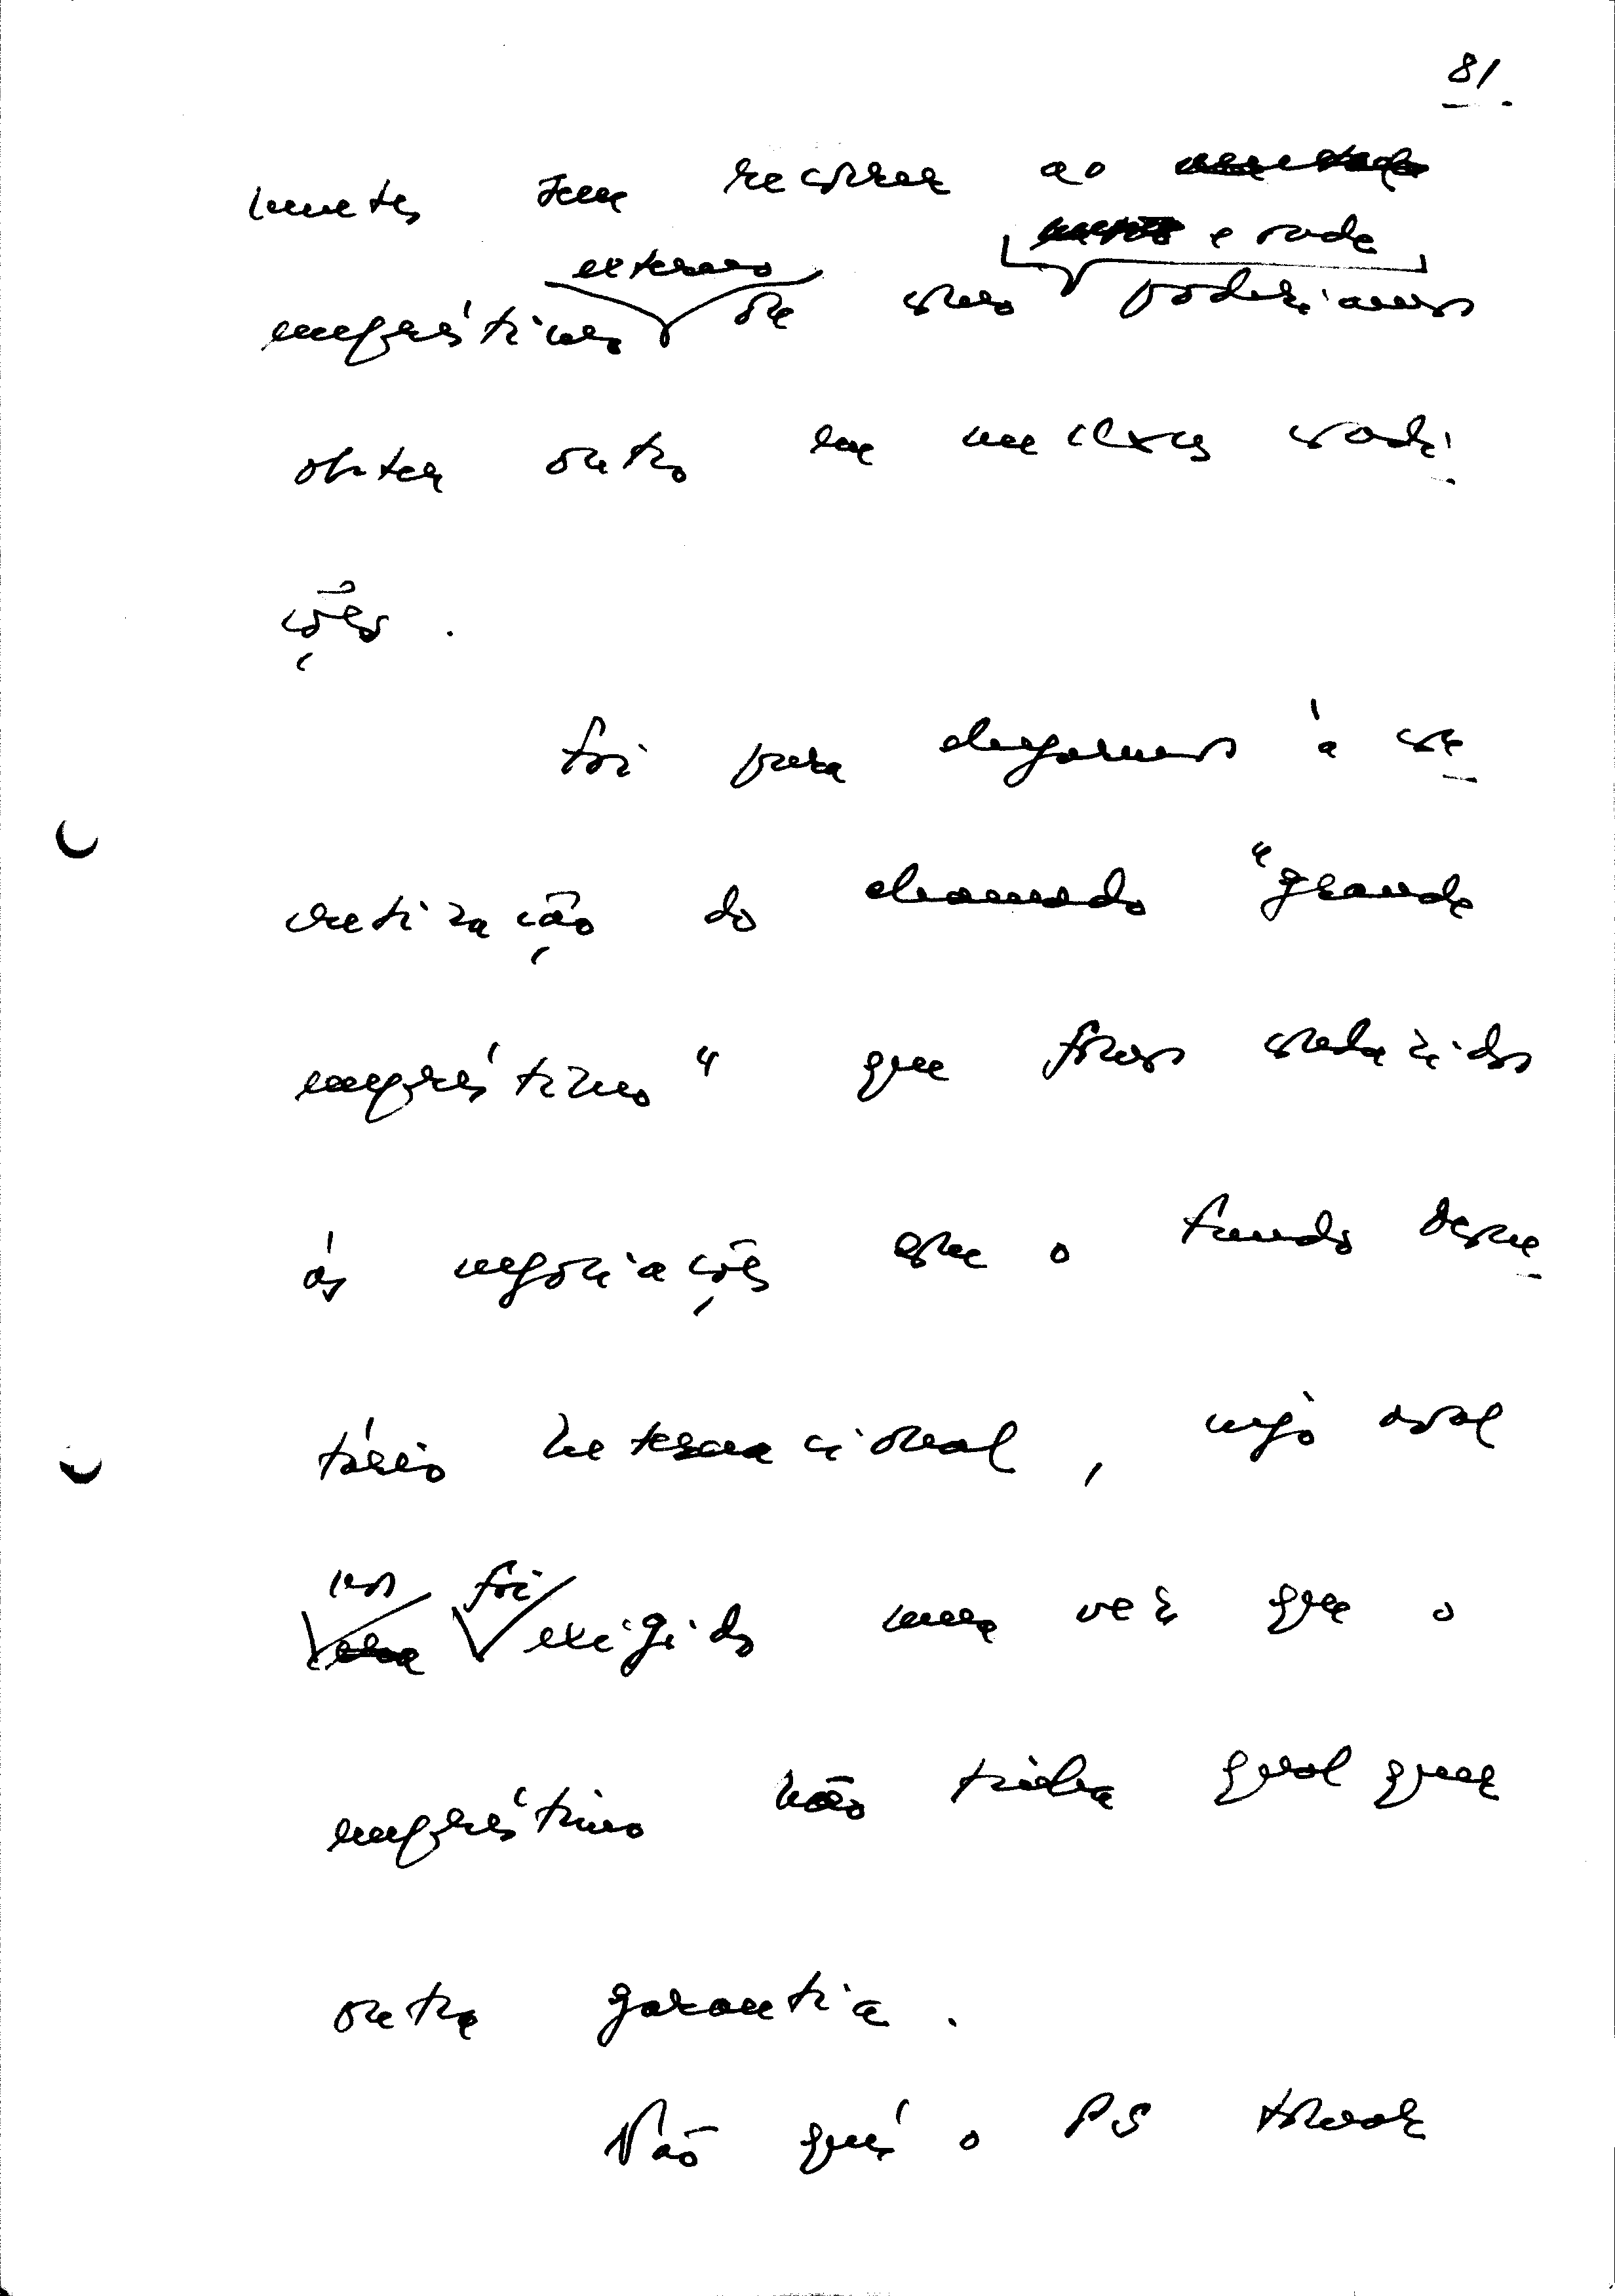 81.
mentos sem recorrer ao
e onde
externo
empréstimo ou como poderíamos
obter outro em melhores condi-
ções.
Foi para chegarmos à con-
cretização do chamado "grande
empréstimo" que fomos conduzidos
às negociações com o Fundo Mone-
tário Internacional, cujo aval
nos foi
exigido uma vez que o
empréstimo não tinha qualquer
outra garantia.
Não quis o PS tomar